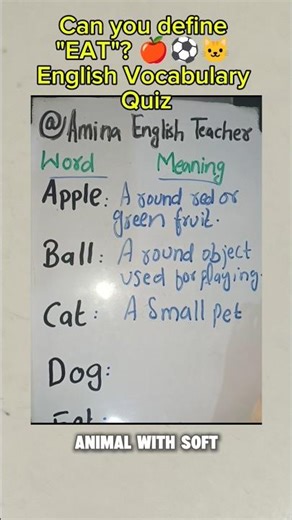 Can you define
"EAT"? 🍎⚽🐱
English Vocabulary
Quiz
@Amina English Teacher
Word Meaning
Apple: A round red or
green fruit.
Ball: A round object
used for playing.
Cat: A Small pet
Dog:
Eat:
ANIMAL WITH SOFT